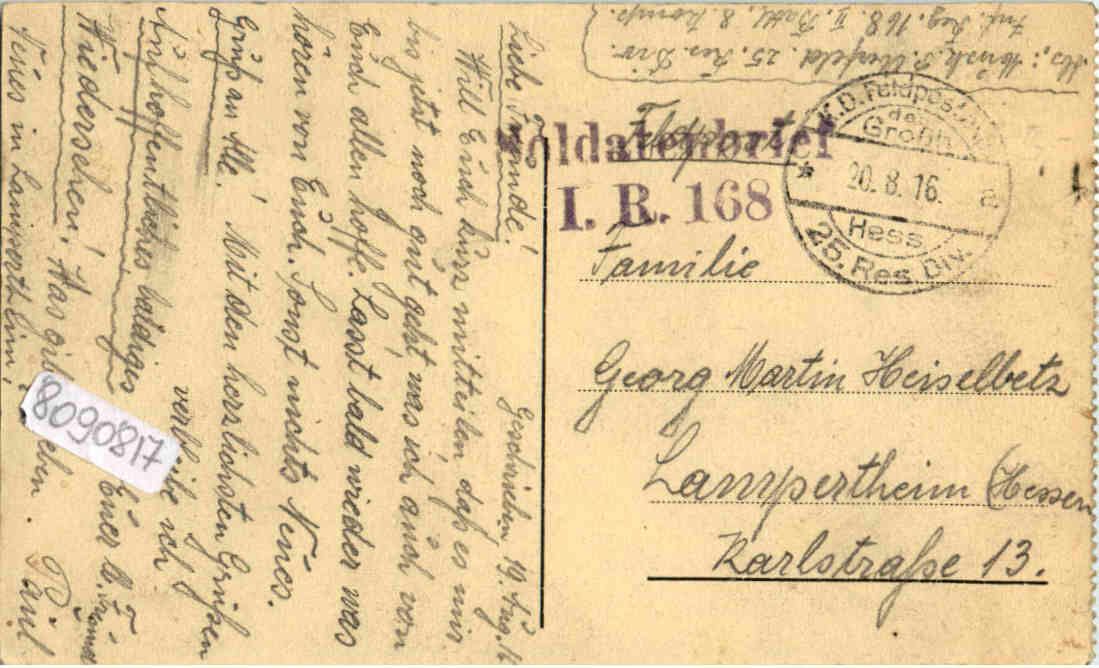 Abs: Musk. P. 25. Res. Div.
Inf. Reg. 168. II. Batl, 8. Komp.
Feldpost
Soldatenbrief
I. R. 168
K.D. Feldpost
der
Grossh.
20. 8. 16.
a
Hess
25. Res. Div.
Familie
Georg Martin Heiselbetz
Lampertheim (Hessen
Karlstraße 13.
Geschrieben, 19. Aug. 16
Liebe Freunde!
Will Euch kurz mitteilen daß es mir
bis jetzt noch gut geht was ich auch von
Euch allen hoffe. Lasst bald wieder was
hören von Euch. Sonst nichts Neues.
Gruß an Alle! Mit den herzlichsten Grüßen
verbleibe ich
Auf hoffentliches baldiges
Euer l. Freund
Wiedersehen! Was
Paul
Neues in Lampertheim!
8090817